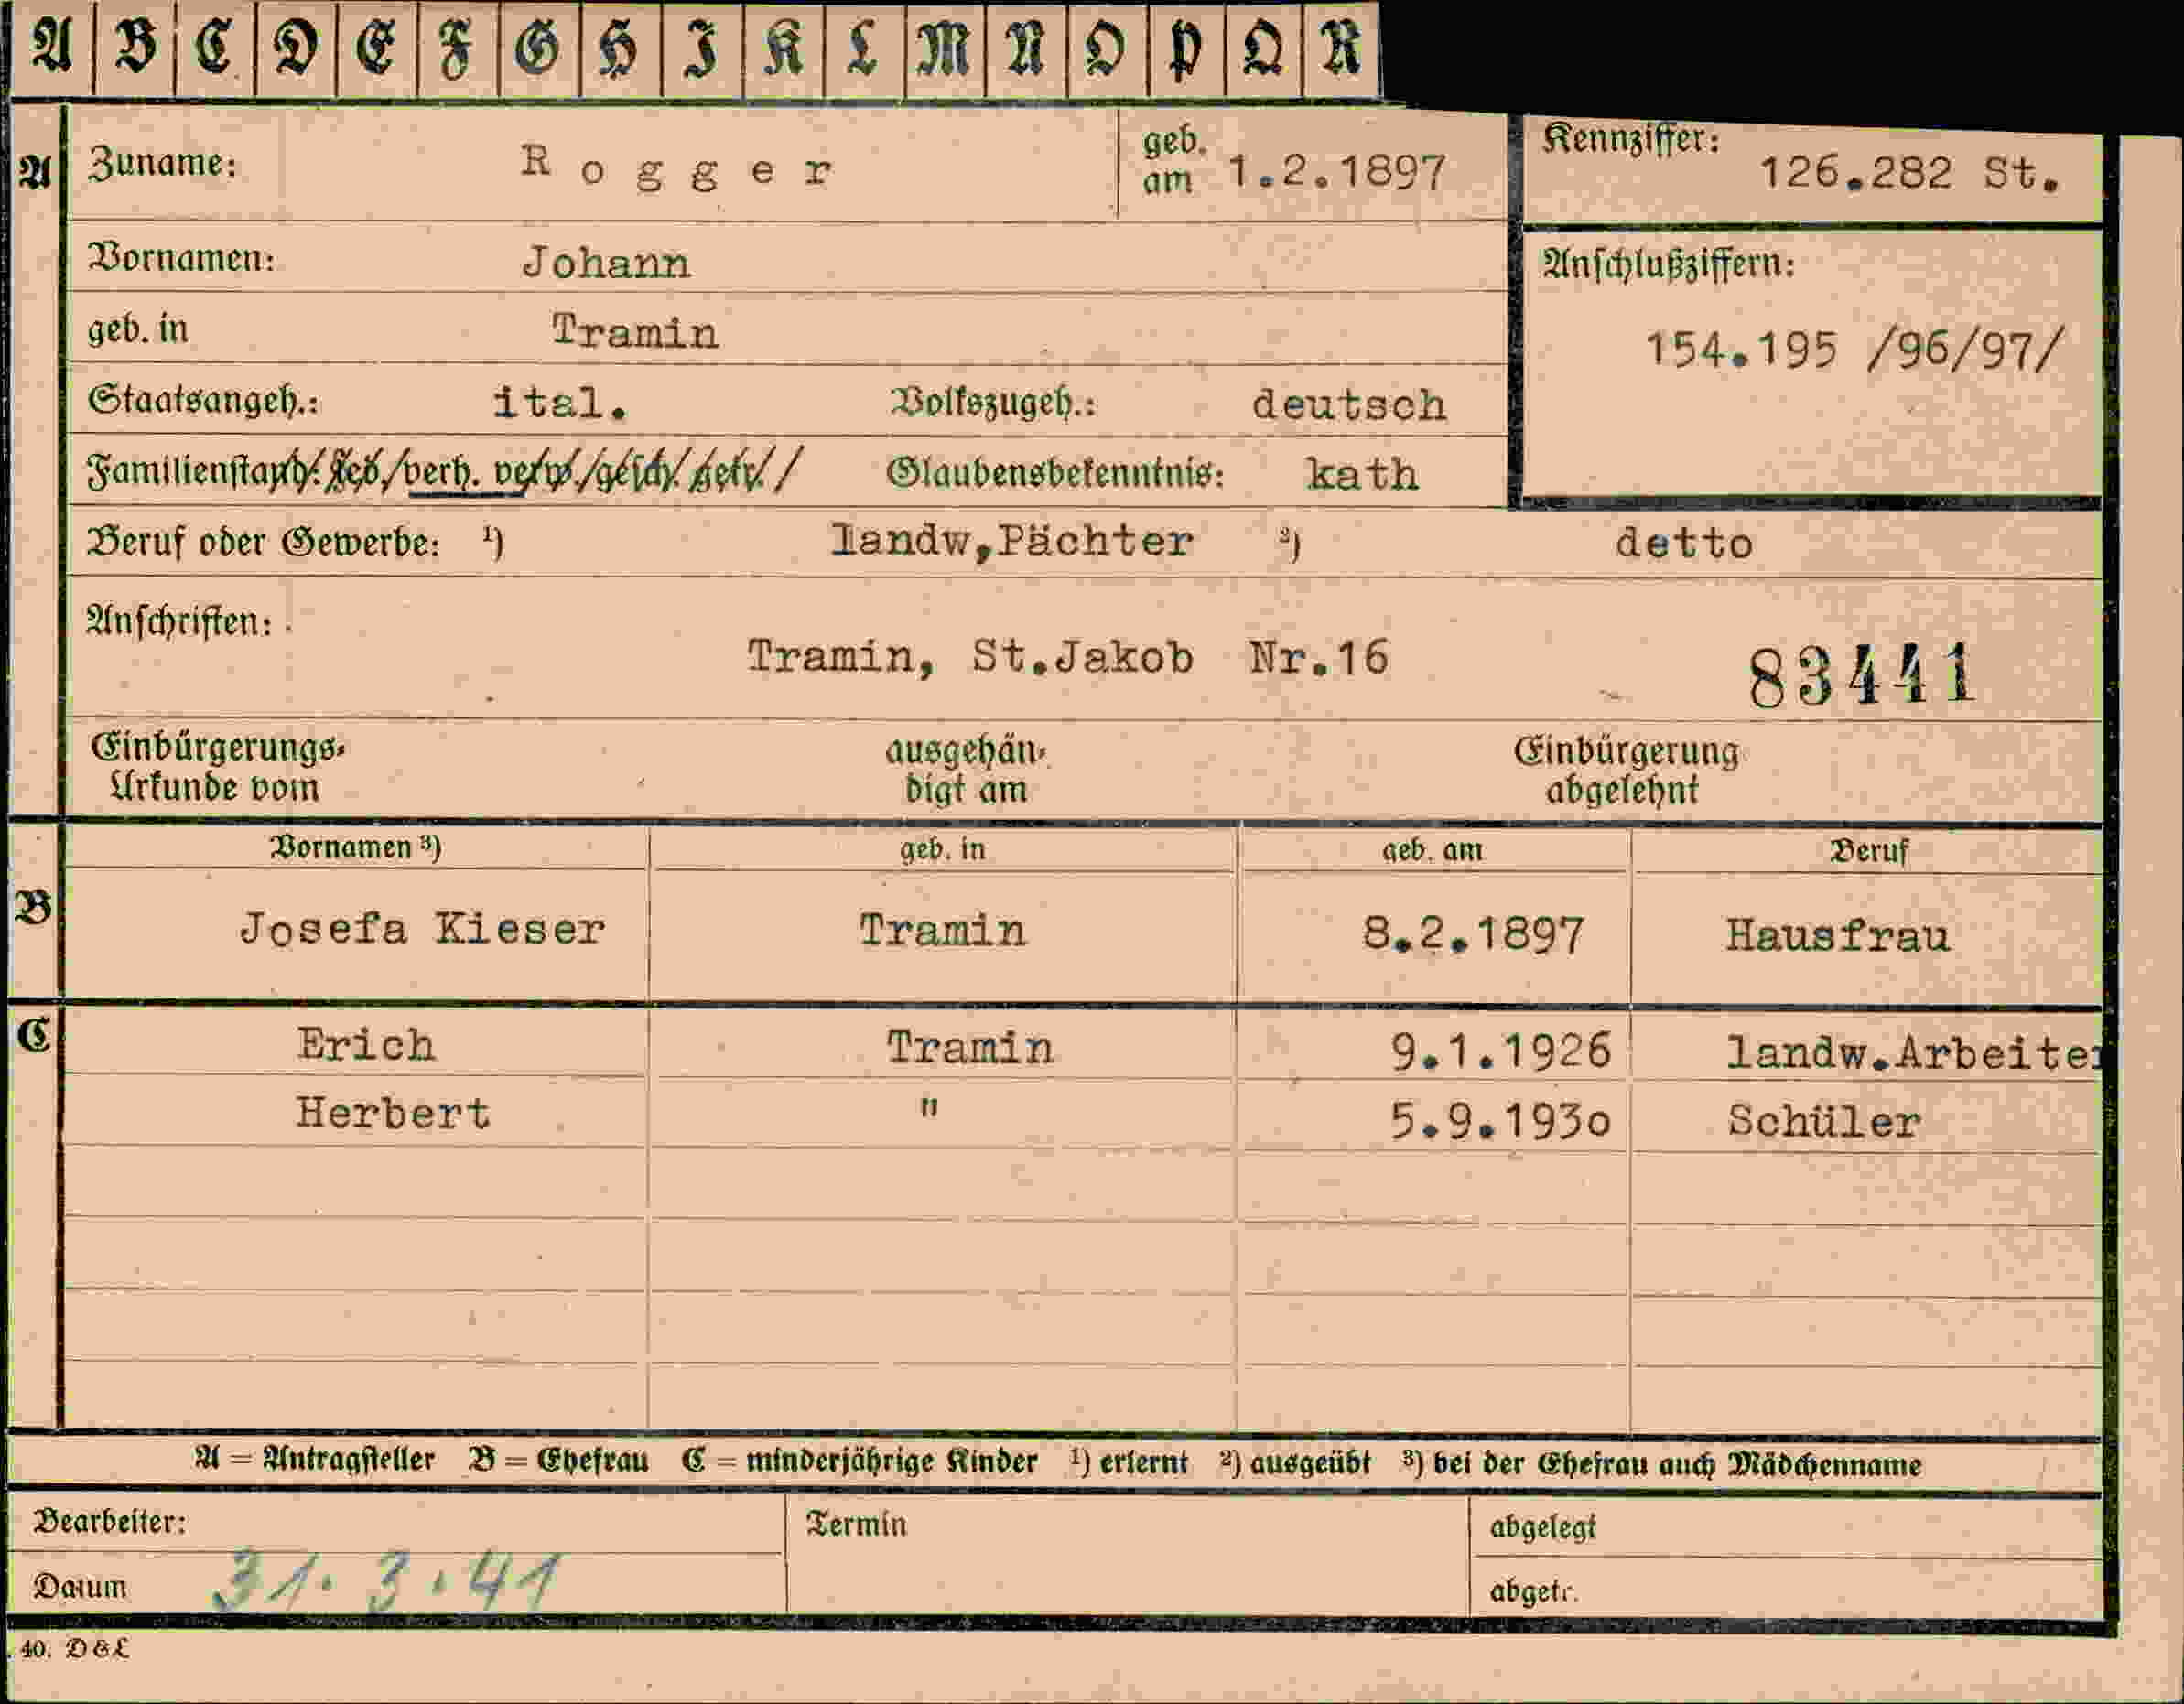 A B C D E F G H I K L M N O P Q R
A Zuname: Rogger geb. am 1.2.1897 Kennziffer: 126.282 St.
Vornamen: Johann Anschlußziffern:
geb. in Tramin 154.195 /96/97/
Staatsangeh.: ital. Volkszugeh.: deutsch
Familienstand: led. verh. verw. gesch. getr. Glaubensbekenntnis: kath
Beruf oder Gewerbe: ¹) landw,Pächter ²) detto
Anschriften:
Tramin, St.Jakob Nr.16 83441
Einbürgerungs- ausgehän- Einbürgerung
Urkunde vom digt am abgelehnt
Vornamen ³) geb. in geb. am Beruf
B Josefa Kieser Tramin 8.2.1897 Hausfrau
C Erich Tramin 9.1.1926 landw.Arbeiter
Herbert " 5.9.193o Schüler
A = Antragsteller B = Ehefrau C = minderjährige Kinder ¹) erlernt ²) ausgeübt ³) bei der Ehefrau auch Mädchenname
Bearbeiter: Termin abgelegt
Datum 31.3.41 abgetr.
40. D&L